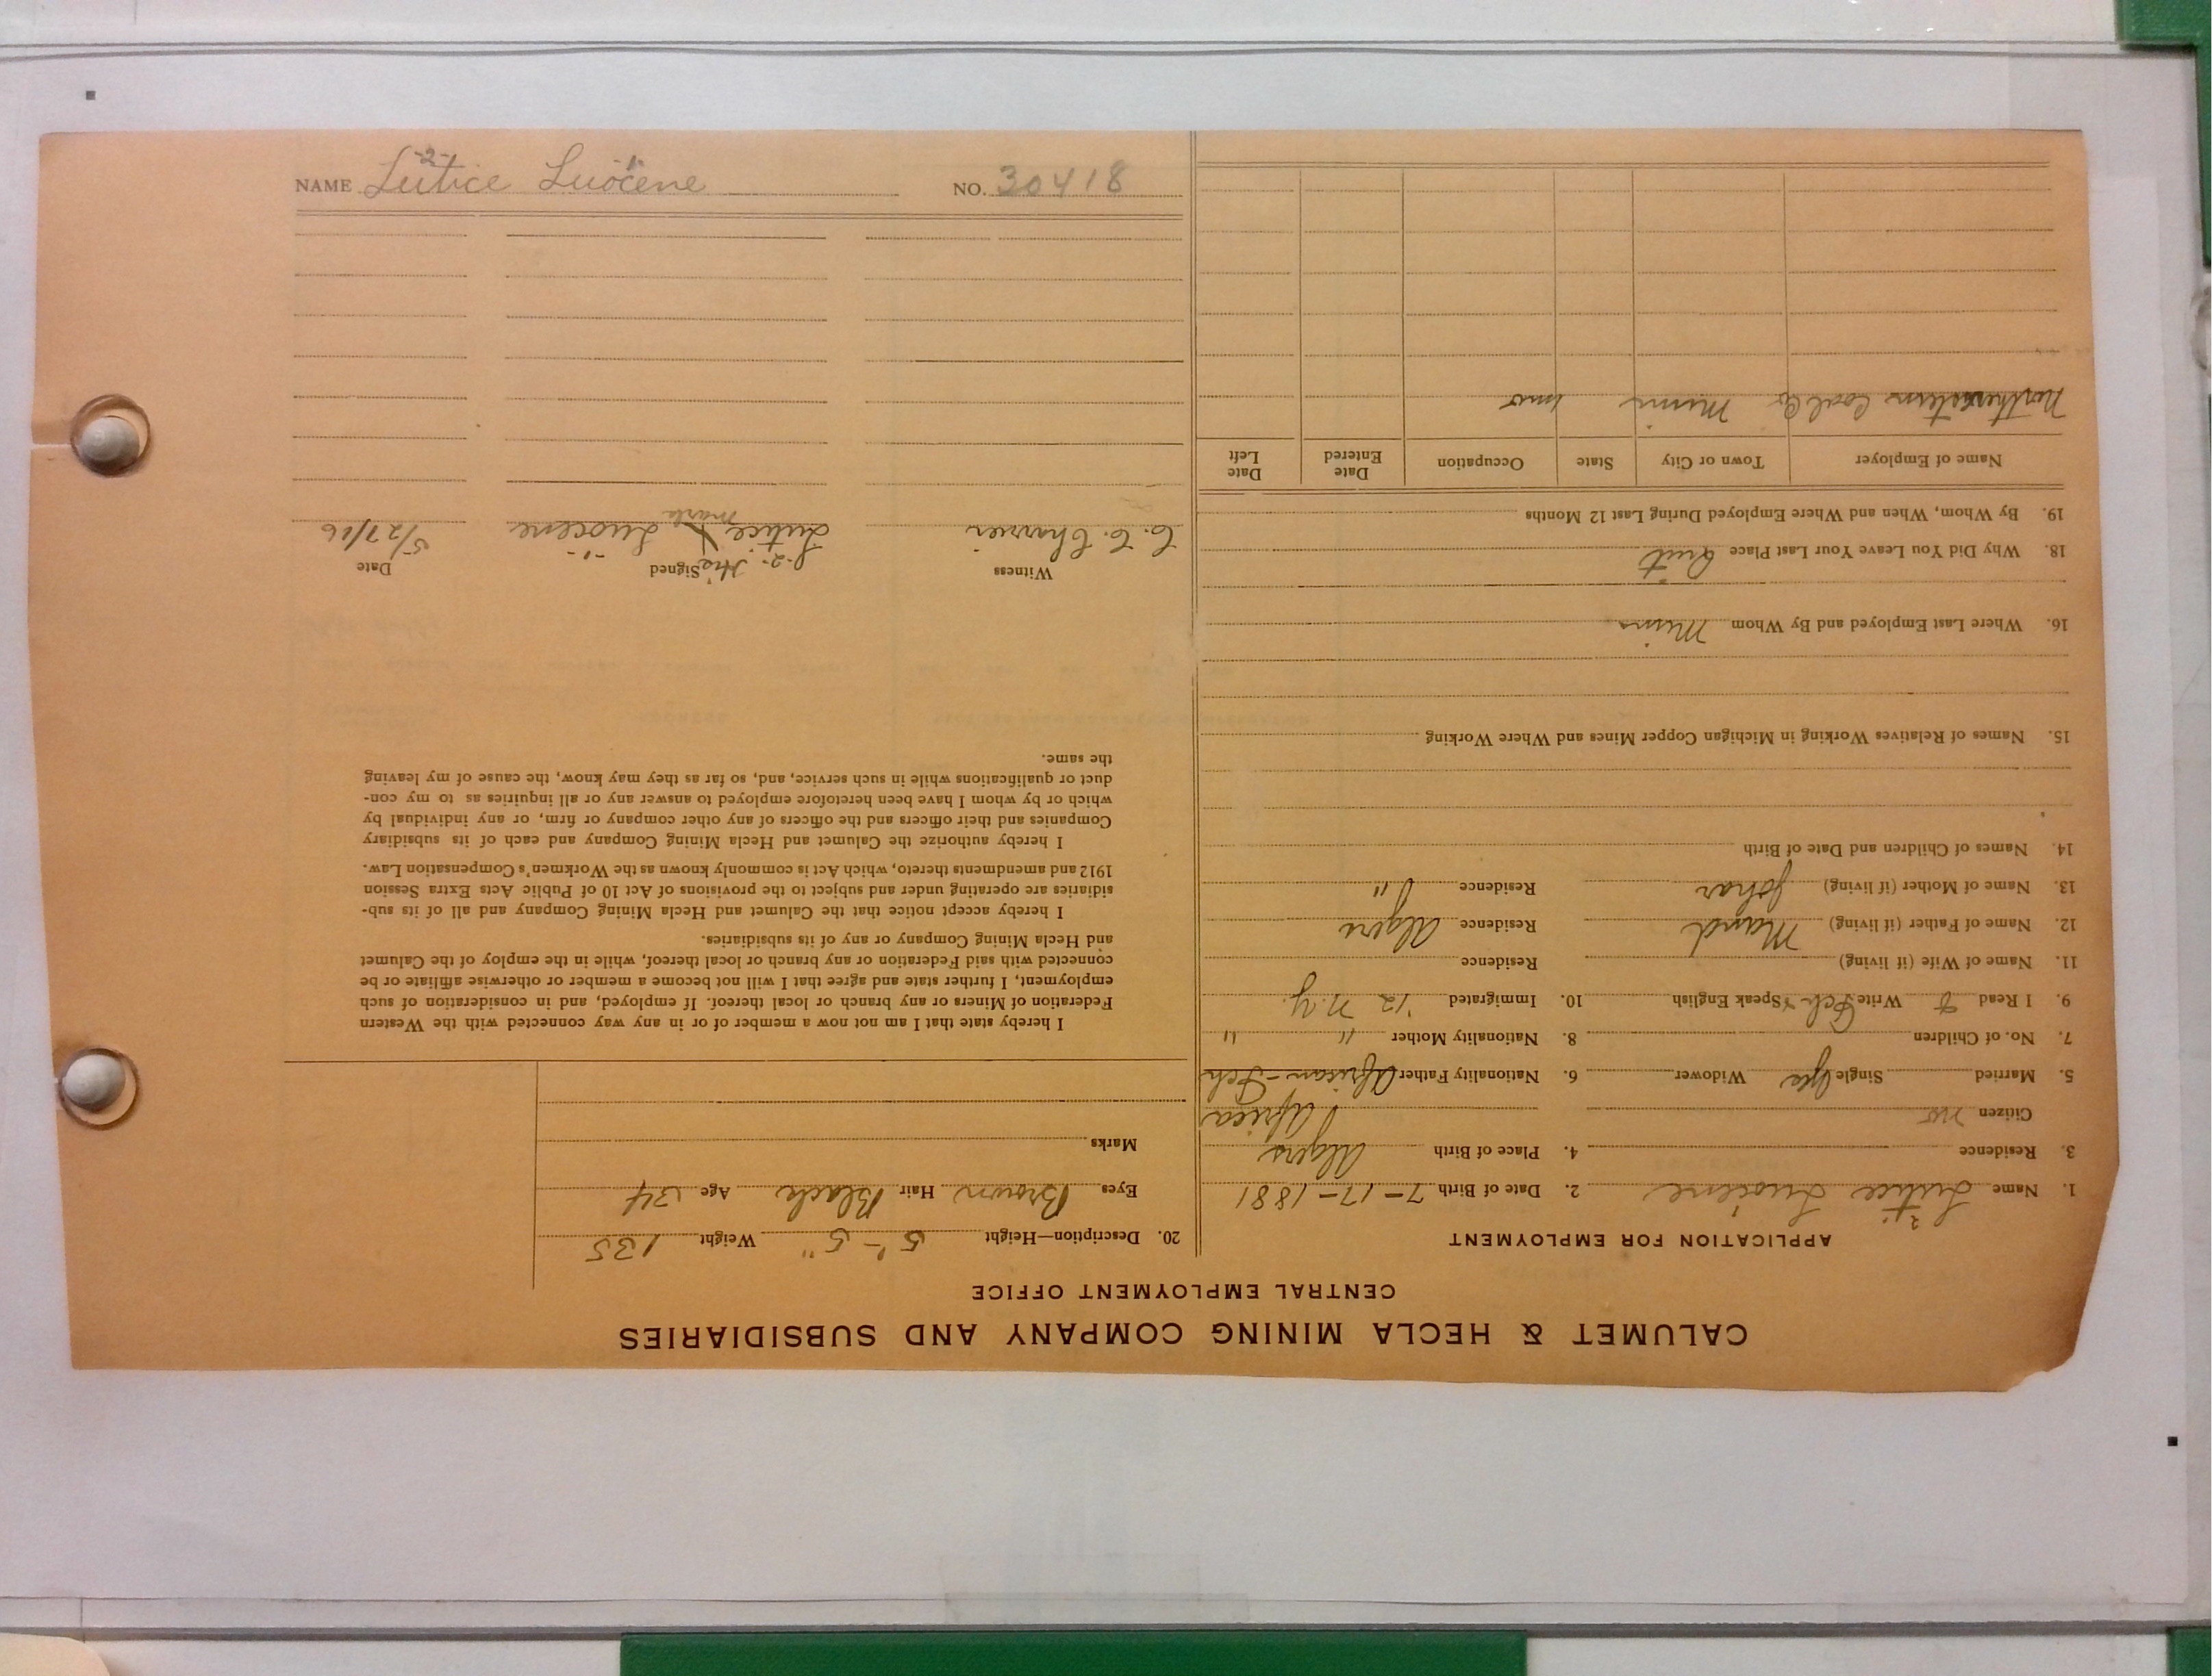 CALUMET & HECLA MINING COMPANY AND SUBSIDIARIES
CENTRAL EMPLOYMENT OFFICE
APPLICATION FOR EMPLOYMENT
1. Name Lutice Luocene 2. Date of Birth 7-17-1881
3. Residence 4. Place of Birth Algers
Citizen no Africa
5. Married Single Yes Widower 6. Nationality Father African-Fch
7. No. of Children 8. Nationality Mother " "
9. I Read & Write Fch Speak English 10. Immigrated '12 N.Y.
11. Name of Wife (if living) Residence
12. Name of Father (if living) Residence Algers
13. Name of Mother (if living) Johar Residence "
14. Names of Children and Date of Birth
15. Names of Relatives Working in Michigan Copper Mines and Where Working
16. Where Last Employed and By Whom Minn
18. Why Did You Leave Your Last Place Quit
19. By Whom, When and Where Employed During Last 12 Months
Name of Employer Town or City State Occupation Date Entered Date Left
Northwestern Coal Co Minn 1 mo
20. Description—Height 5'-5" Weight 135
Eyes Brown Hair Black Age 34
Marks
I hereby state that I am not now a member of or in any way connected with the Western
Federation of Miners or any branch or local thereof. If employed, and in consideration of such
employment, I further state and agree that I will not become a member or otherwise affiliate or be
connected with said Federation or any branch or local thereof, while in the employ of the Calumet
and Hecla Mining Company or any of its subsidiaries.
I hereby accept notice that the Calumet and Hecla Mining Company and all of its sub-
sidiaries are operating under and subject to the provisions of Act 10 of Public Acts Extra Session
1912 and amendments thereto, which Act is commonly known as the Workmen's Compensation Law.
I hereby authorize the Calumet and Hecla Mining Company and each of its subsidiary
Companies and their officers and the officers of any other company or firm, or any individual by
which or by whom I have been heretofore employed to answer any or all inquiries as to my con-
duct or qualifications while in such service, and, so far as they may know, the cause of my leaving
the same.
Witness Signed Date
-2- His -1-
C. C. Charrier Lutice X Luocene 5/27/16
mark
-2- -1-
NAME Lutice Luocene NO. 30418